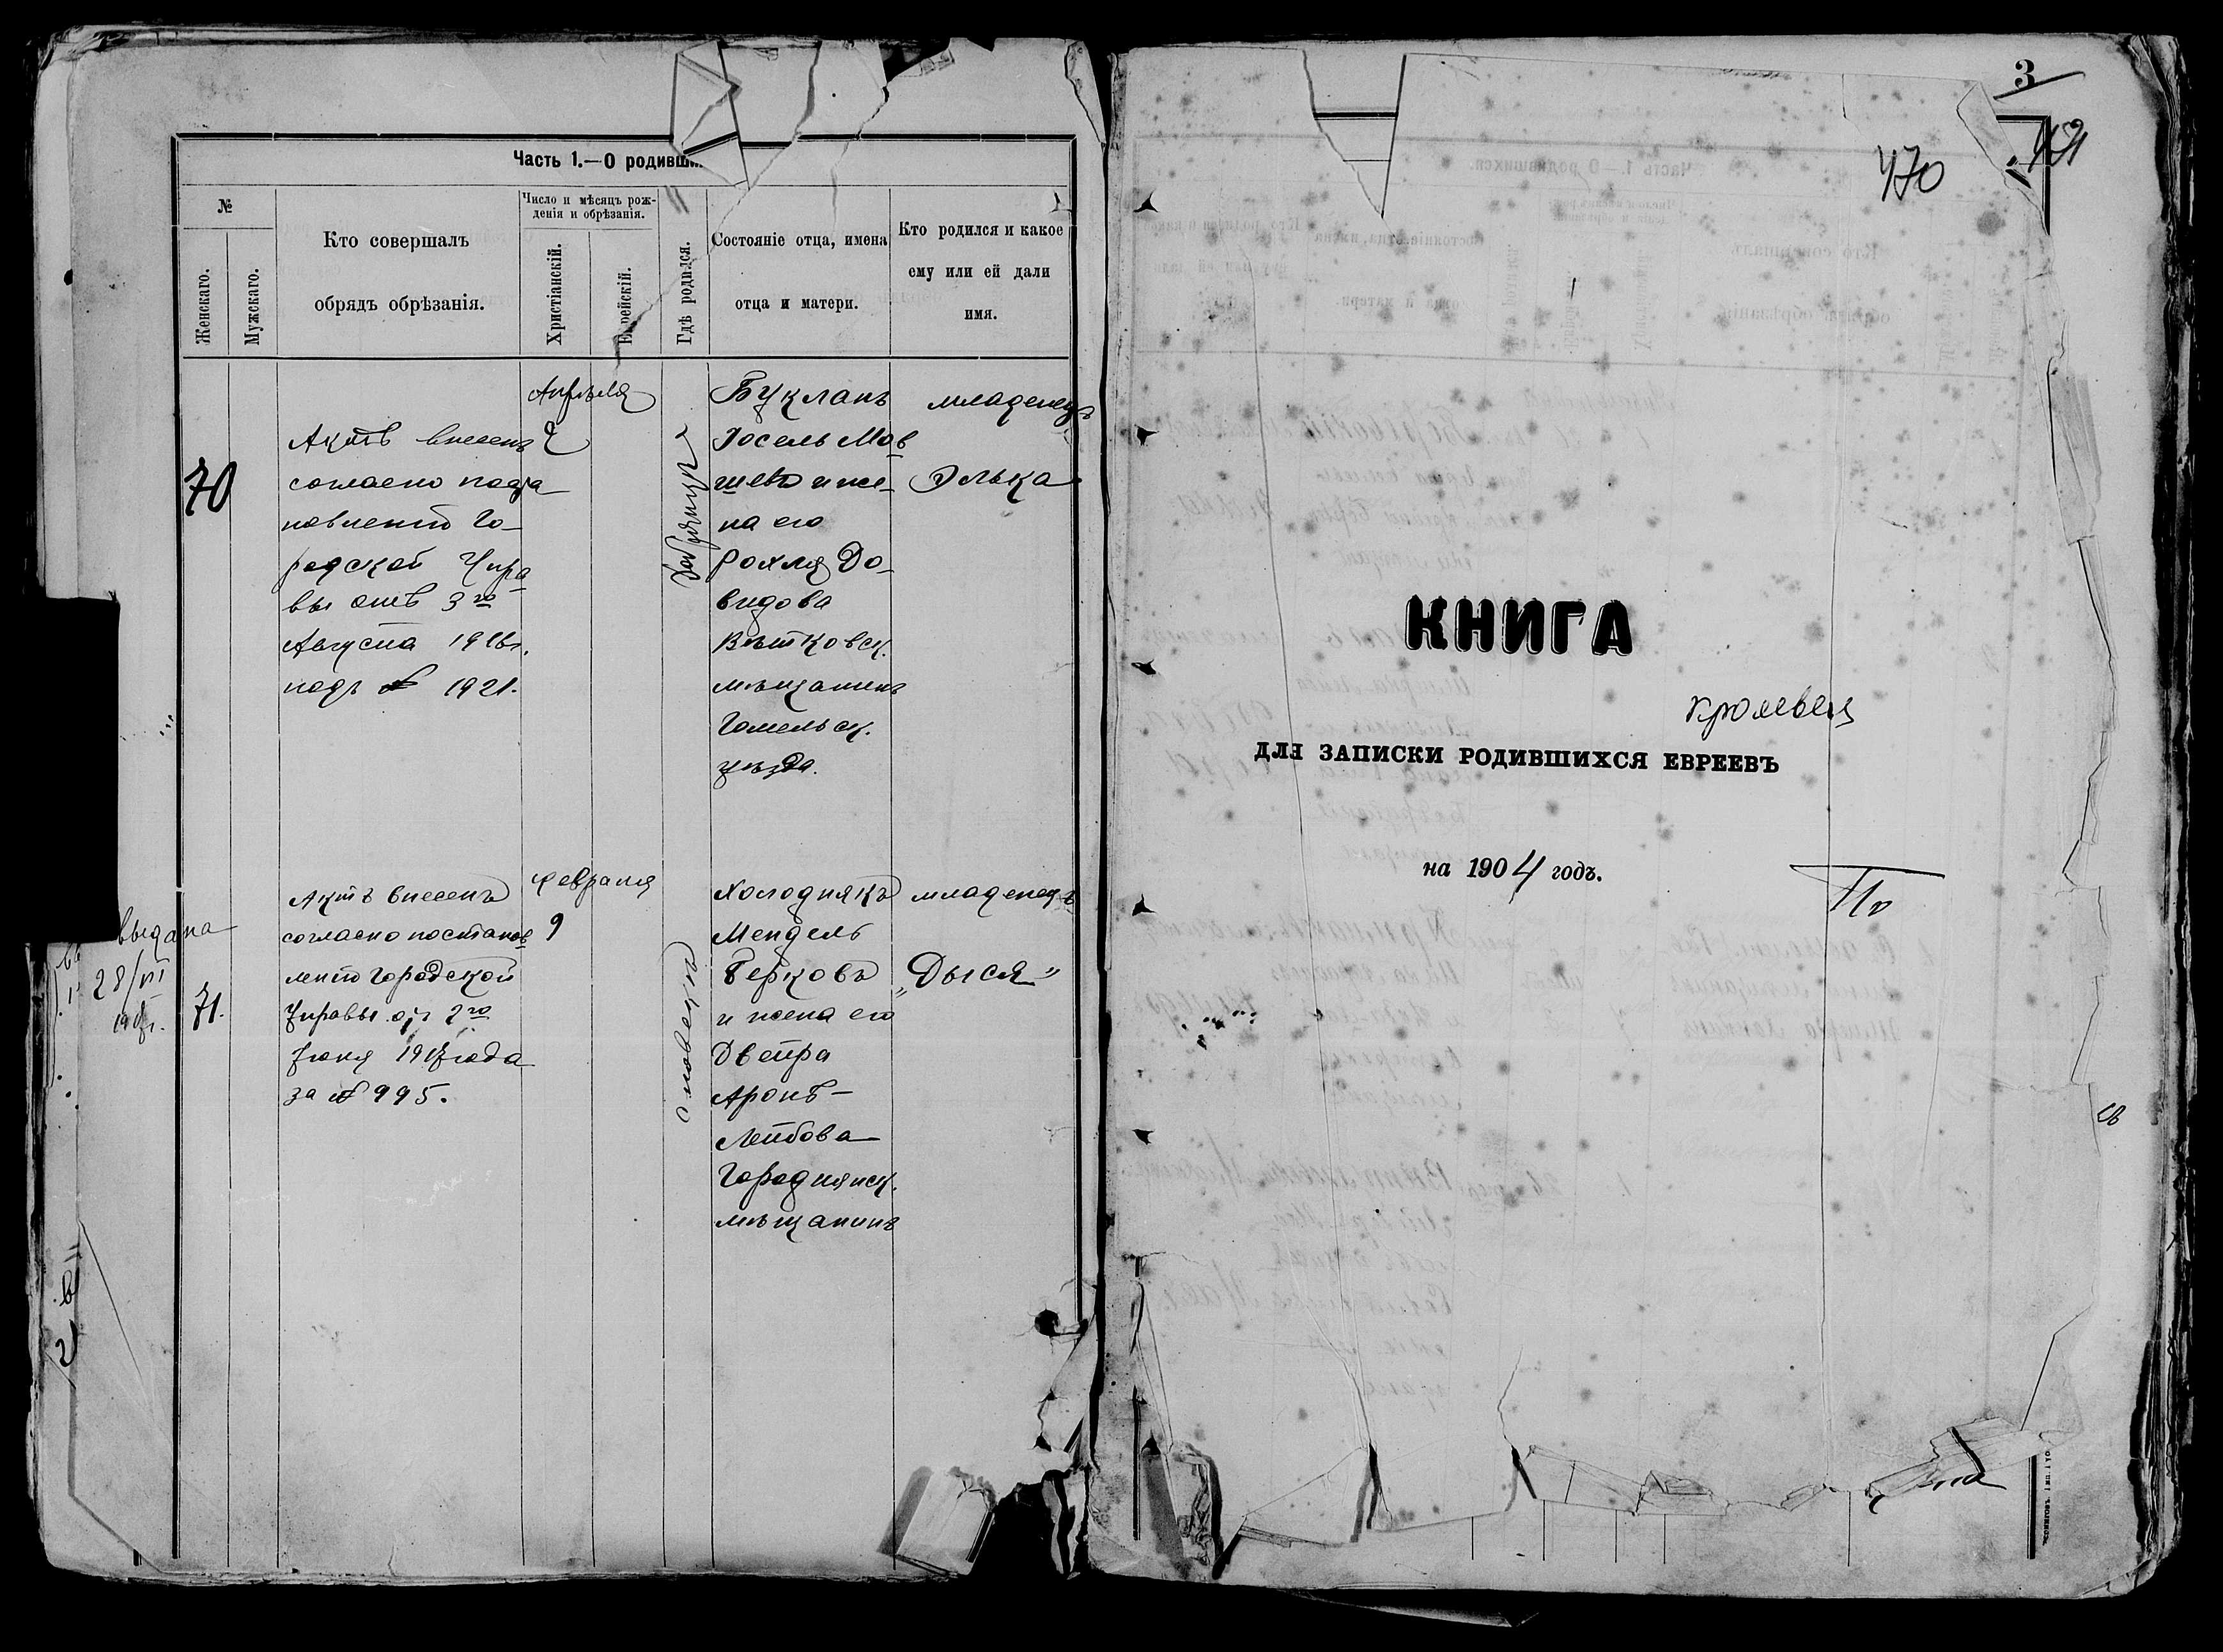 Часть 1.—О родивши
№
Женскаго.
Мужскаго.
Кто совершалъ
обрядъ обрѣзанія.
Число и мѣсяцъ рож-
денія и обрѣзанія.
Христіанскій.
Еврейскій.
Гдѣ родился.
Состояніе отца, имена
отца и матери.
Кто родился и какое
ему или ей дали
имя.
70
Актъ внесенъ
согласно поста
новленію Го-
родской Упра
вы отъ 3го
Августа 1916г.
подъ № 1921.
Апрѣля
2
Букланъ
Іосель Мов
шевъ и же-
на его
Рохля До-
видова
Вѣтковск.
мѣщанинъ
Гомельск.
уѣзда.
младенецъ
Элька
выдана
28/VII
71.
Актъ внесенъ
согласно постанов
ленію Городской
Управы от 2го
Іюня 1917 года
за № 995.
февраля
9
Холоднякъ
Мендель
Берковъ
и жена его
Двейра
Аронъ-
Лейбова
Городнянск.
мѣщанинъ
младенецъ
„Дыся"
3
470
КНИГА
Кролевец
ДЛЯ ЗАПИСКИ РОДИВШИХСЯ ЕВРЕЕВЪ
на 1904 годъ.